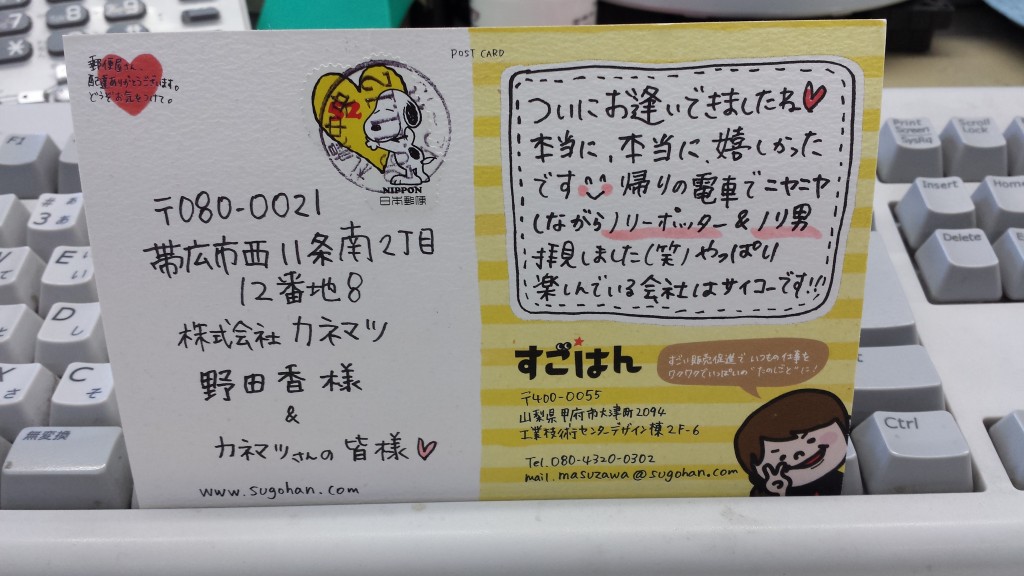 郵便屋さん、
配達ありがとうございます。
どうぞお気をつけて。
POST CARD
NIPPON
日本郵便
〒080-0021
帯広市西11条南2丁目
12番地8
株式会社 カネマツ
野田香様
&
カネマツさんの 皆様
www.sugohan.com
ついにお逢いできましたね
本当に、本当に、嬉しかった
です 帰りの電車でニヤニヤ
しながらノリーポッター&ノリ男
拝見しました(笑)やっぱり
楽しんでいる会社はサイコーです!!!
すごはん
すごい販売促進で いつもの仕事を
ワクワクでいっぱいの"たのしごと"に!
〒400-0055
山梨県甲府市大津町2094
工業技術センターデザイン棟2F-6
Tel.080-4320-0302
mail.masuzawa@sugohan.com
F1
3
E
D
C
無変換
Print
Screen
SysRq
Scroll
Lock
Insert
Home
Delete
Ctrl